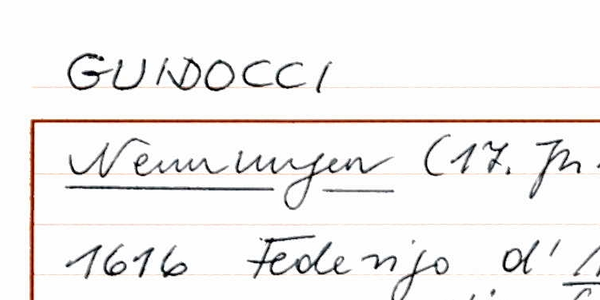 GUIDOCCI
Nennungen (17. Jh.
1616 Federigo d'